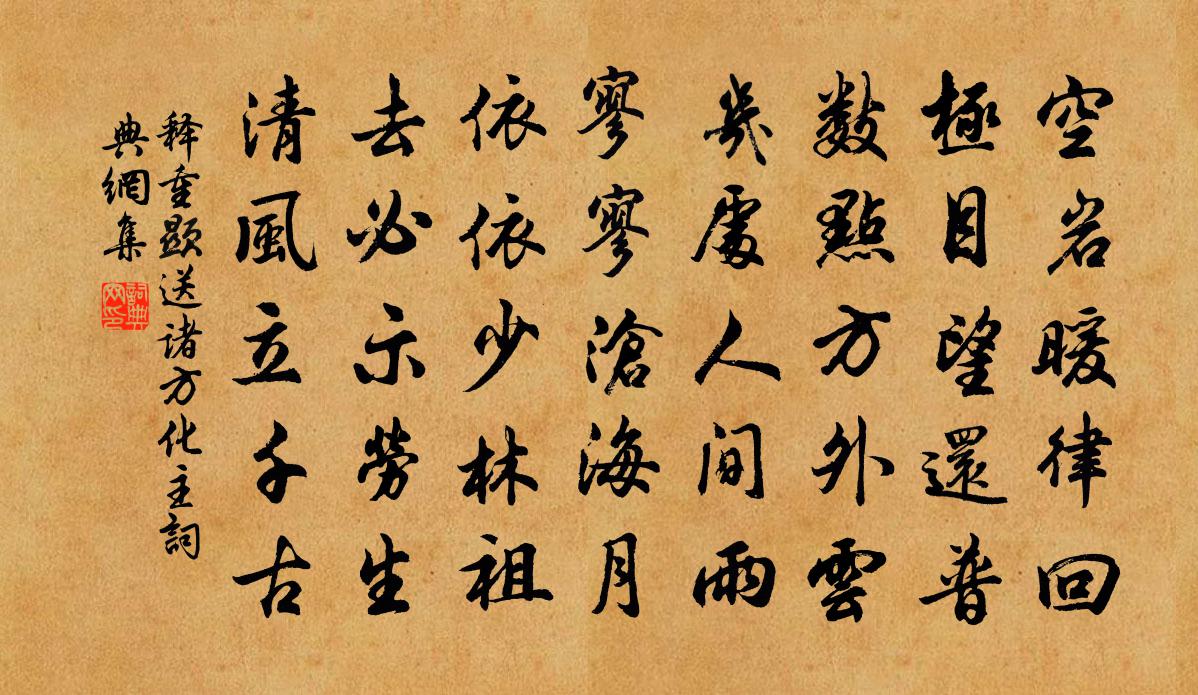 空岩暖律回
極目望還普
數點方外雲
幾處人间雨
寥寥滄海月
依依少林祖
去必示勞生
清風立千古
释重顯送诸方化主詞
典網集
詞典
网印